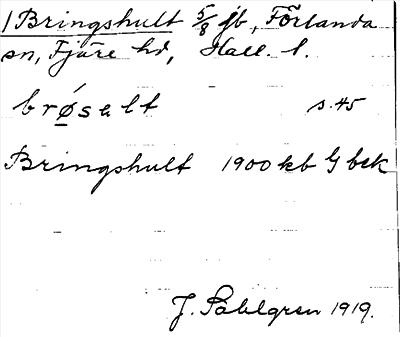 1 Bringshult 5/8 jb, Förlanda
sn, Fjäre hd, Hall. l.
brøsalt s. 45
Bringshult 1900 kb G bek
J. Sahlgren 1919.